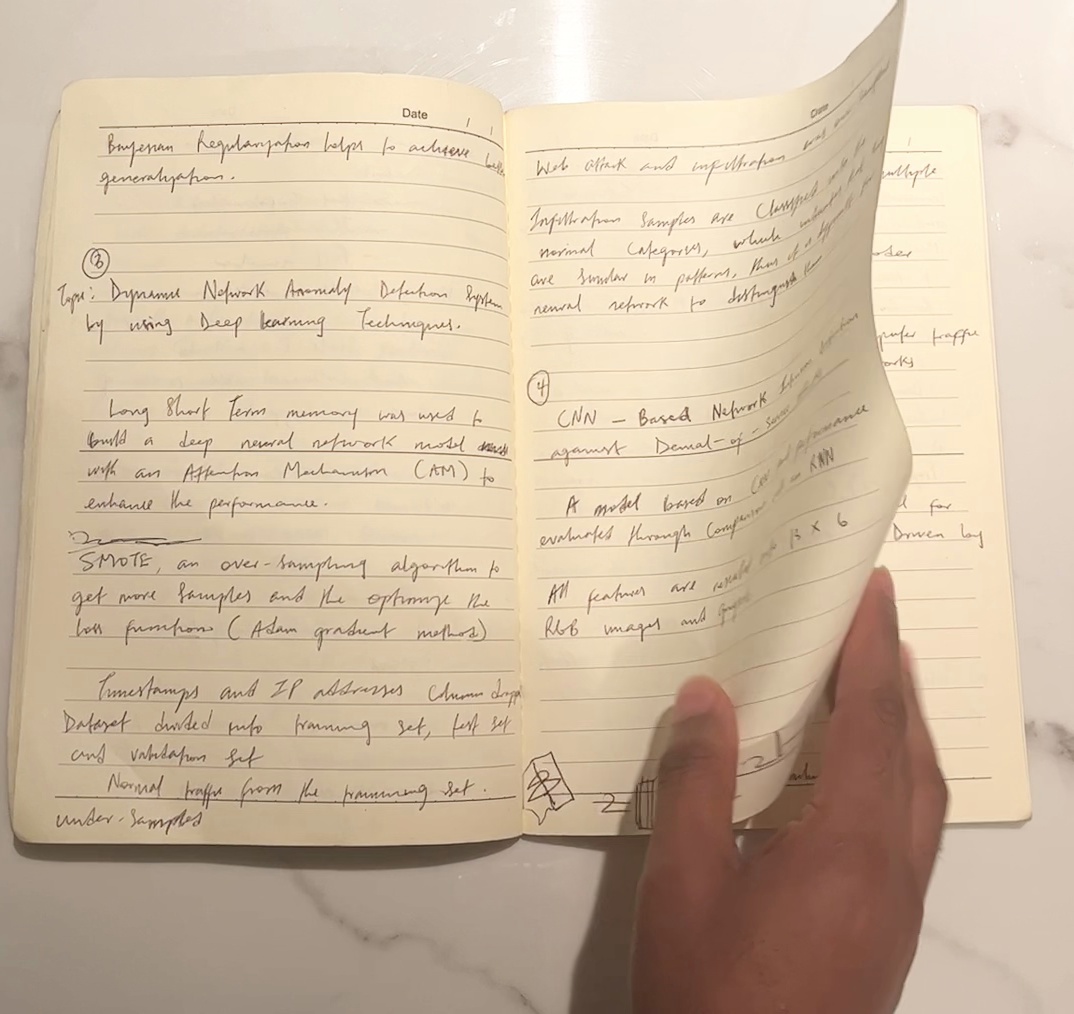 Date / /
Bayesian Regularization helps to achieve
generalization.
③
Topic: Dynamic Network Anomaly Detection System
by using Deep learning Techniques.
Long Short Term memory was used to
build a deep neural network model
with an Attention Mechanism (AM) to
enhance the performance.
SMOTE, an over-sampling algorithm to
get more samples and the optimize the
loss function (Adam gradient method)
Timestamps and IP addresses column
Dataset divided into training set, test set
and validation set
Normal traffic from the training set.
under-samples
Date
Web attack and infiltration was
Infiltration samples are classified
normal categories, which
are similar in patterns, thus it is
neural network to distinguish
④
CNN - Based Network
against Denial-of-Service
A model based on CNN and performance
evaluated through comparison an RNN
All features are 13 x 6
RGB images and
2
multiple
traffic
for
Driven by